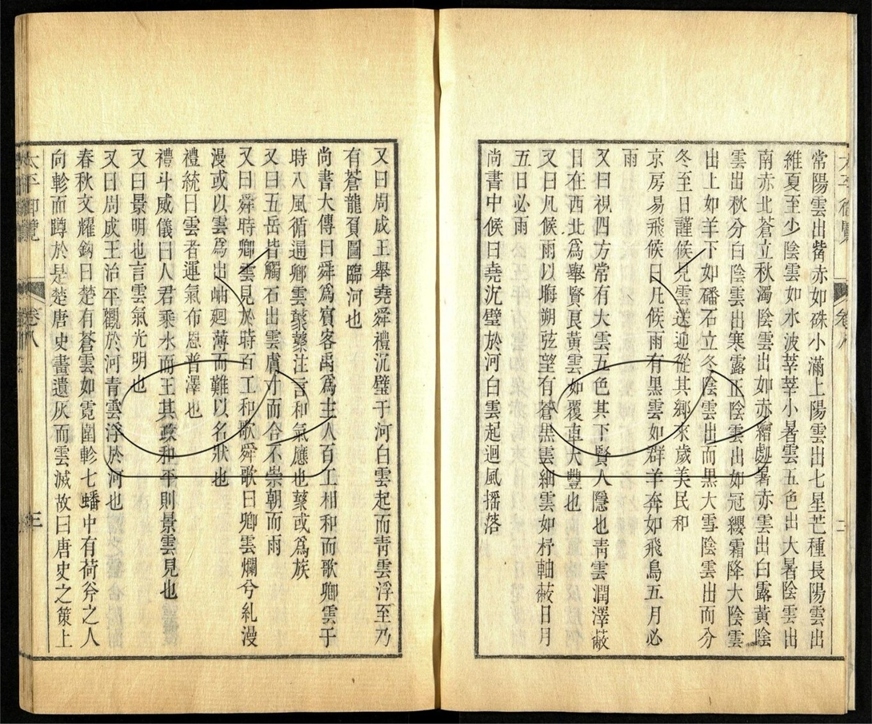 太平御覽
卷八
二
常陽雲出觜赤如硃小滿上陽雲出七星芒種長陽雲出
維夏至少陰雲如水波莘莘小暑雲五色出大暑陰雲出
南赤北蒼立秋濁陰雲出如赤繒處暑赤雲出白露黃陰
雲出秋分白陰雲出寒露正陰雲出如冠纓霜降大陰雲
出上如羊下如磻石立冬陰雲出而黑大雪陰雲出而分
冬至日謹候見雲送迎從其鄉來歲美民和
京房易飛候曰凡候雨有黑雲如群羊奔如飛鳥五月必
雨
又曰視四方常有大雲五色其下賢人隱也青雲潤澤蔽
日在西北為舉賢良黃雲如覆車大豐也
又曰凡候雨以晦朔弦望有蒼黑雲細雲如杼軸蔽日月
五日必雨
尚書中候曰堯沉璧於河白雲起迴風搖落
又曰周成王舉堯舜禮沉璧于河白雲起而青雲浮至乃
有蒼龍負圖臨河也
尚書大傳曰舜為賓客禹為主人百工相和而歌卿雲于
時八風循通卿雲蘂蘂注言和氣應也蘂或為族
又曰五岳皆觸石出雲膚寸而合不崇朝而雨
又曰舜時卿雲見於時百工和歌舜歌曰卿雲爛兮糺漫
漫或以雲為出岫迴薄而難以名狀也
禮統曰雲者運氣布恩普澤也
禮斗威儀曰人君乘水而王其政和平則景雲見也
又曰景明也言雲氣光明也
又曰周成王治平觀於河青雲浮於河也
春秋文耀鈎曰楚有蒼雲如霓圍軫七蟠中有荷斧之人
向軫而蹲於是楚唐史畫遺灰而雲滅故曰唐史之策上
太平御覽
卷八
三